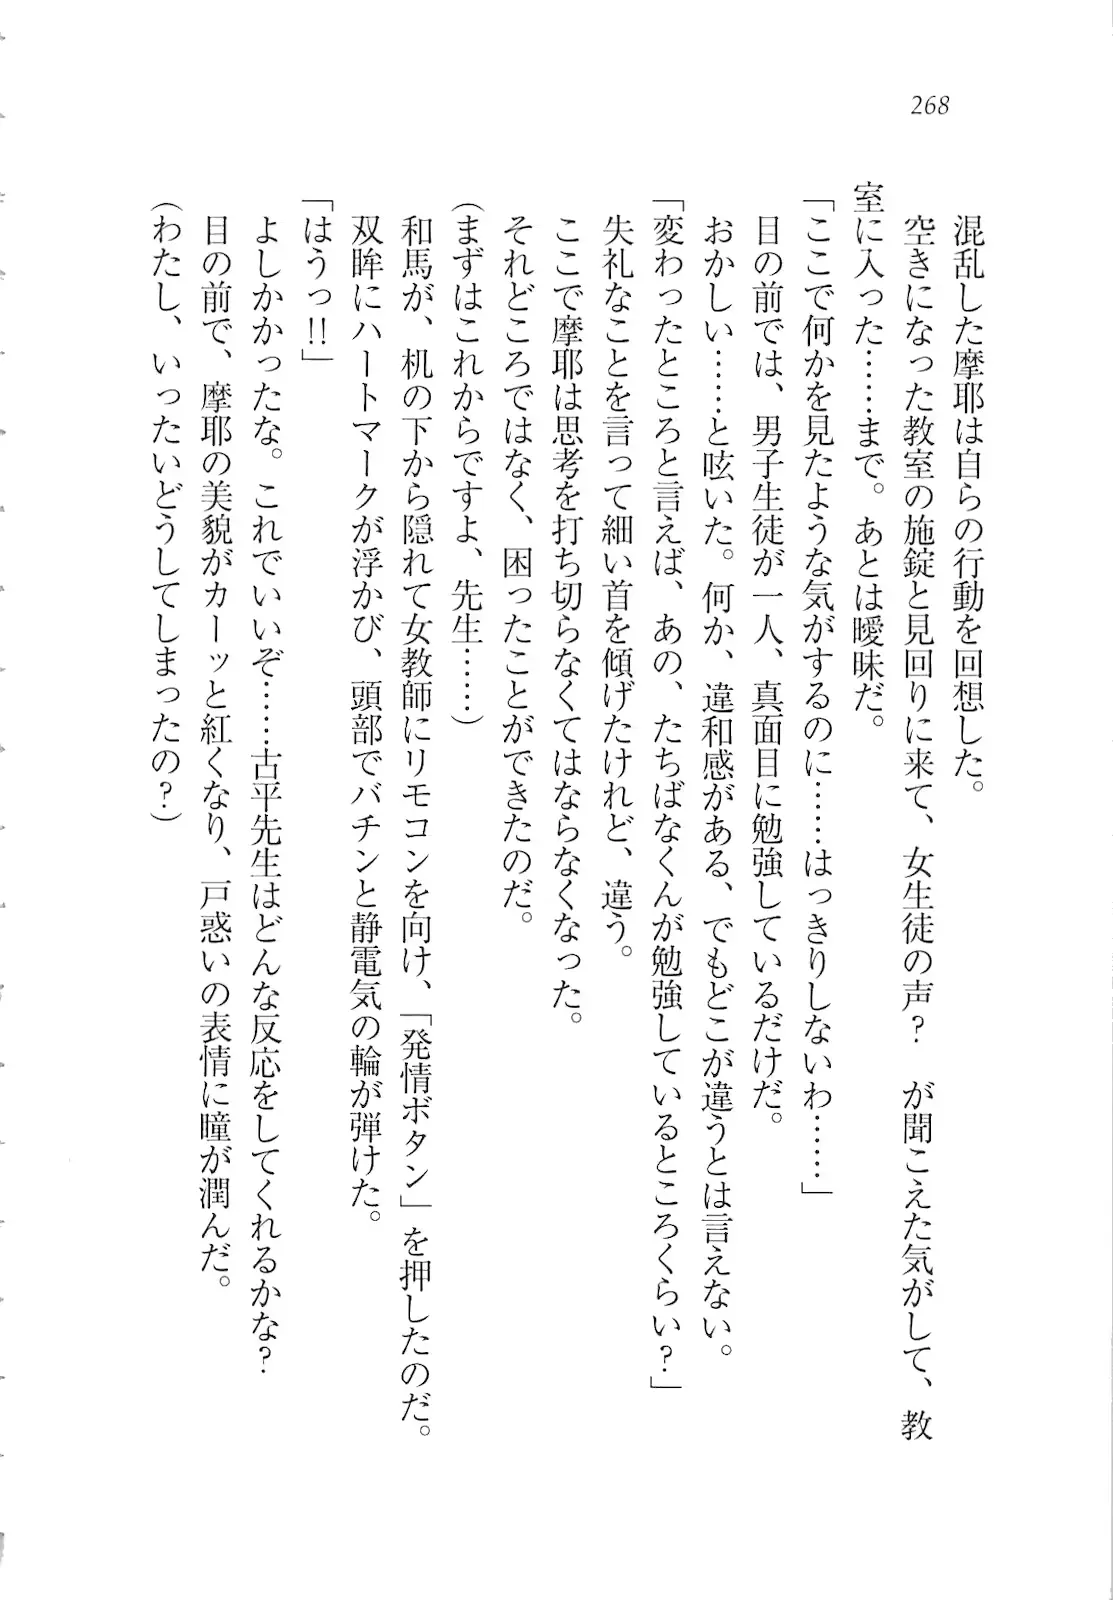 268
混乱した摩耶は自らの行動を回想した。
空きになった教室の施錠と見回りに来て、女生徒の声？　が聞こえた気がして、教
室に入った……まで。あとは曖昧だ。
「ここで何かを見たような気がするのに……はっきりしないわ……」
目の前では、男子生徒が一人、真面目に勉強しているだけだ。
おかしい……と呟いた。何か、違和感がある、でもどこが違うとは言えない。
「変わったところと言えば、あの、たちばなくんが勉強しているところくらい？」
失礼なことを言って細い首を傾げたけれど、違う。
ここで摩耶は思考を打ち切らなくてはならなくなった。
それどころではなく、困ったことができたのだ。
（まずはこれからですよ、先生……）
和馬が、机の下から隠れて女教師にリモコンを向け、「発情ボタン」を押したのだ。
双眸にハートマークが浮かび、頭部でバチンと静電気の輪が弾けた。
「はうっ!!」
よしかかったな。これでいいぞ……古平先生はどんな反応をしてくれるかな？
目の前で、摩耶の美貌がカーッと紅くなり、戸惑いの表情に瞳が潤んだ。
（わたし、いったいどうしてしまったの？）